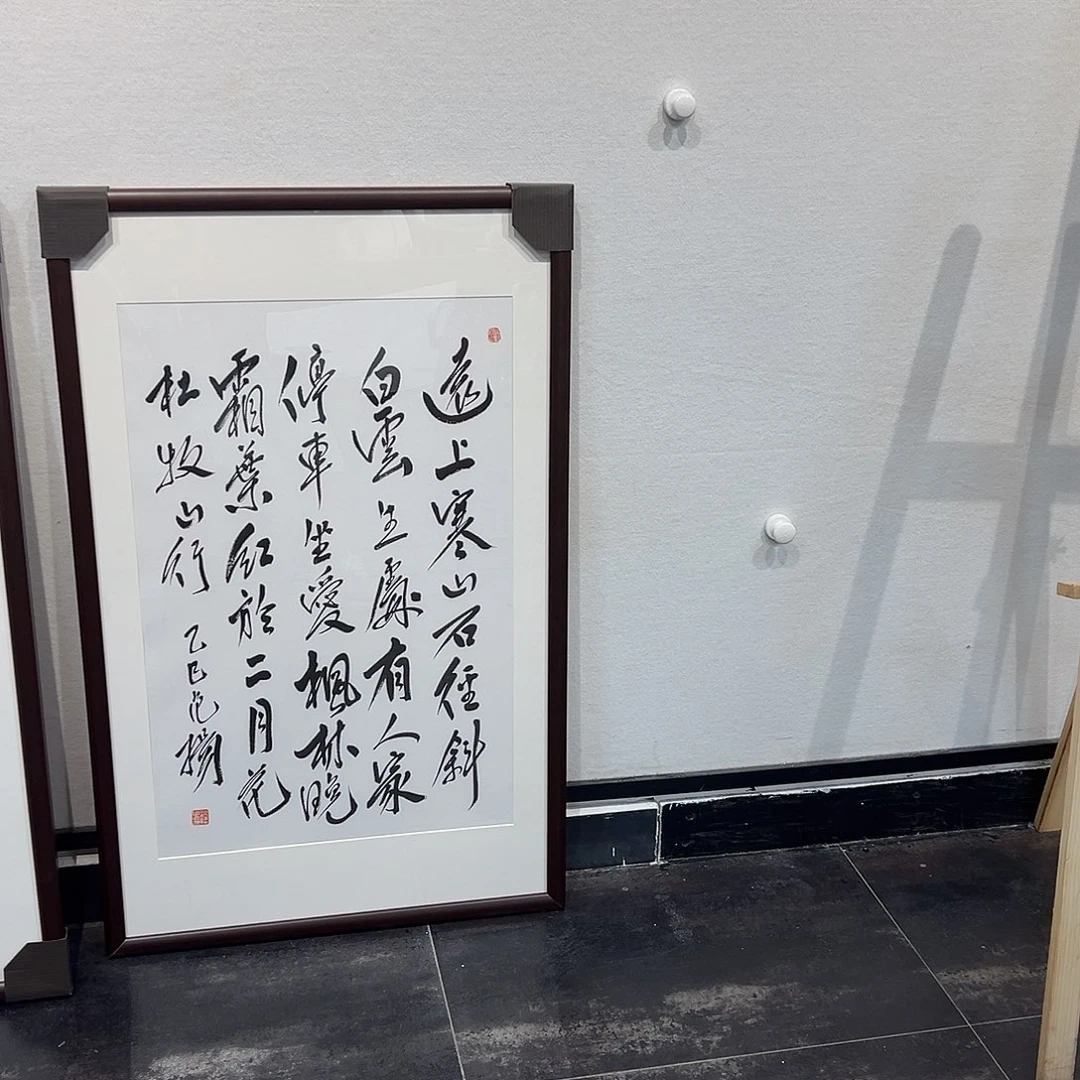 遠上寒山石徑斜
白雲生處有人家
停車坐愛楓林晚
霜葉紅於二月花
杜牧山行 乙巳范揚